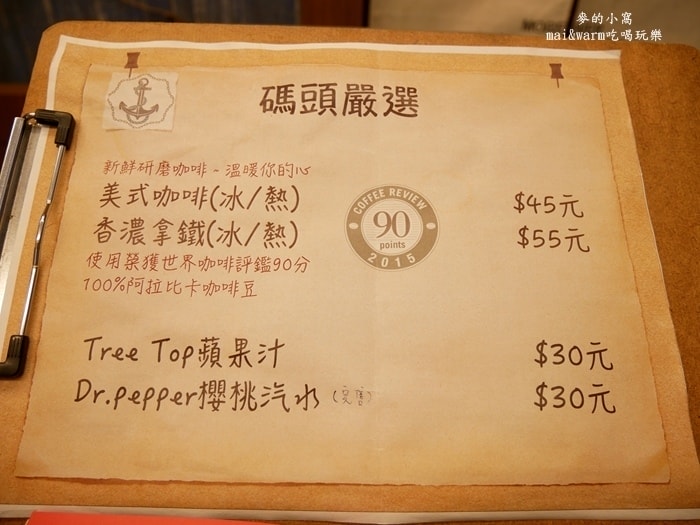 麥的小窩
mai&warm吃喝玩樂
碼頭嚴選
新鮮研磨咖啡、溫暖你的心
美式咖啡(冰/熱) $45元
香濃拿鐵(冰/熱) $55元
COFFEE REVIEW
90
points
2015
使用榮獲世界咖啡評鑑90分
100%阿拉比卡咖啡豆
Tree Top蘋果汁 $30元
Dr.pepper櫻桃汽水 $30元